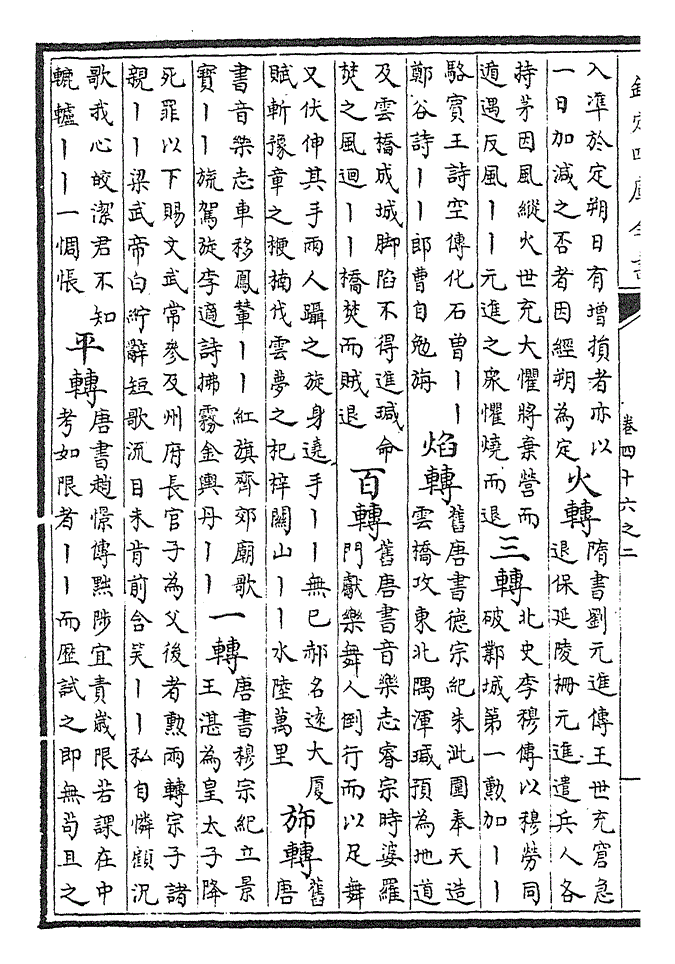 欽定四庫全書
卷四十六之二
入準於定朔日有增損者亦以
一日加減之否者因經朔為定
火轉
隋書劉元進傳王世充窘急
退保延陵柵元進遣兵人各
持茅因風縱火世充大懼將棄營而
遁遇反風丨丨元進之衆懼燒而退
三轉
北史李穆傳以穆勞同
破鄴城第一勲加丨丨
駱賓王詩空傳化石曾丨丨
鄭谷詩丨丨郎曹自勉旃
焰轉
舊唐書德宗紀朱泚圍奉天造
雲橋攻東北隅渾瑊預為地道
及雲橋成城脚陷不得進瑊命
焚之風迴丨丨橋焚而賊退
百轉
舊唐書音樂志睿宗時婆羅
門獻樂舞人倒行而以足舞
又伏伸其手兩人躡之旋身遶手丨丨無已郝名遠大厦
賦斬豫章之楩楠伐雲夢之杞梓闗山丨丨水陸萬里
斾轉
舊
唐
書音樂志車移鳳輦丨丨紅旗齊郊廟歌
寳丨丨旒駕旋李適詩拂霧金輿丹丨丨
一轉
唐書穆宗紀立景
王湛為皇太子降
死罪以下賜文武常參及州府長官子為父後者勲兩轉宗子諸
親丨丨梁武帝白紵辭短歌流目未肯前含笑丨丨私自憐顧況
歌我心皎潔君不知
轆轤丨丨一惆悵
平轉
唐書趙憬傳黜陟宜責歲限若課在中
考如限者丨丨而歴試之即無茍且之